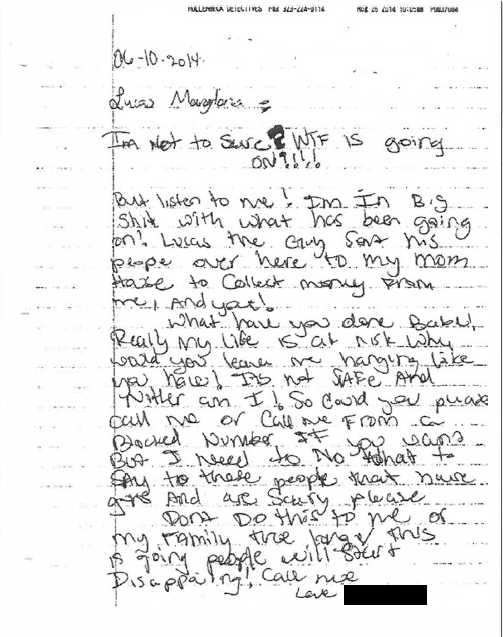 HOLLENBECK DETECTIVES Fax 323-224-0114 Aug 26 2014 10:05am P003/004
06-10-2014
Lucas
Im Not to Sure? WTF IS going
ON?!!!
But listen to me! Im In Big
Shit with what has been going
on! Lucas the Guy Sent his
peope over here to my mom
House to Collect money From
me, And you!
What have you done Babe!
Really my life is at risk why
would you leave me hanging like
you have! Im not SAFE And
Nitler am I! So Could you please
call me or Call me From a
Blocked Number IF you wans
But I Need to No what to
Say to these people that have
guns And are Scary please
Dont Do this to me or
my Family the longer this
is going people will Start
Disappaing! Call me
Love